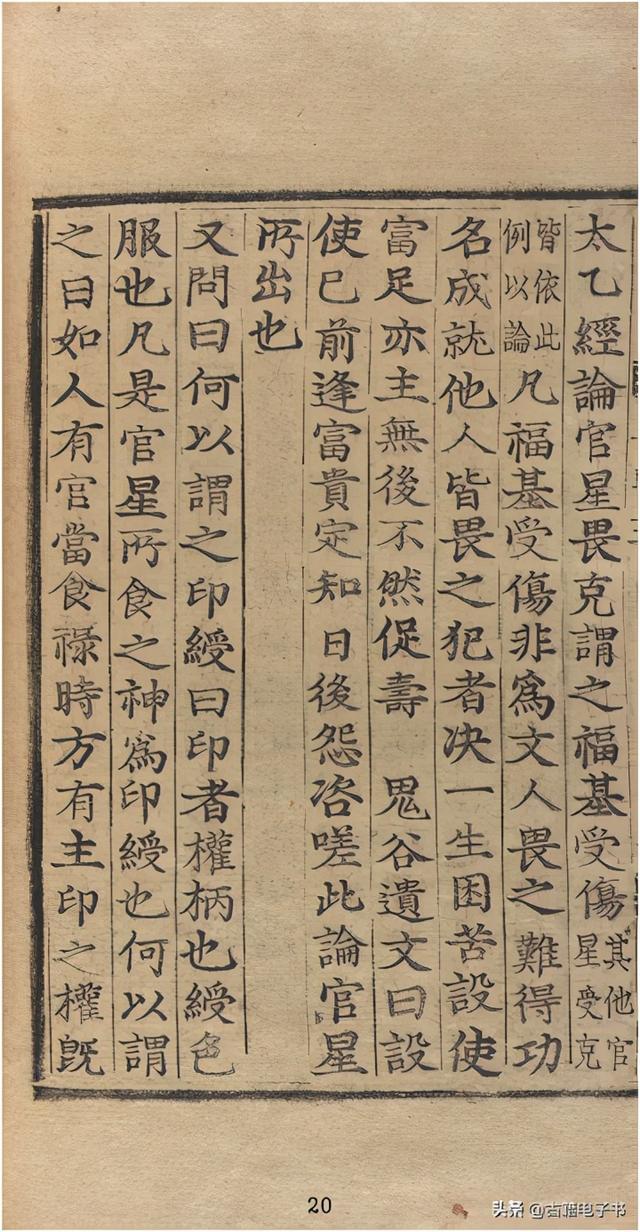 太乙經論官星畏克謂之福基受傷其他官星受克
皆依此例以論凡福基受傷非爲文人畏之難得功
名成就他人皆畏之犯者决一生困苦設使
富足亦主無後不然促壽　鬼谷遺文曰設
使巳前逢富貴定知日後怨咨嗟此論官星
所出也
又問曰何以謂之印綬曰印者權柄也綬色
服也凡是官星所食之神爲印綬也何以謂
之曰如人有官當食禄時方有主印之權旣
20
头条 @古籍电子书